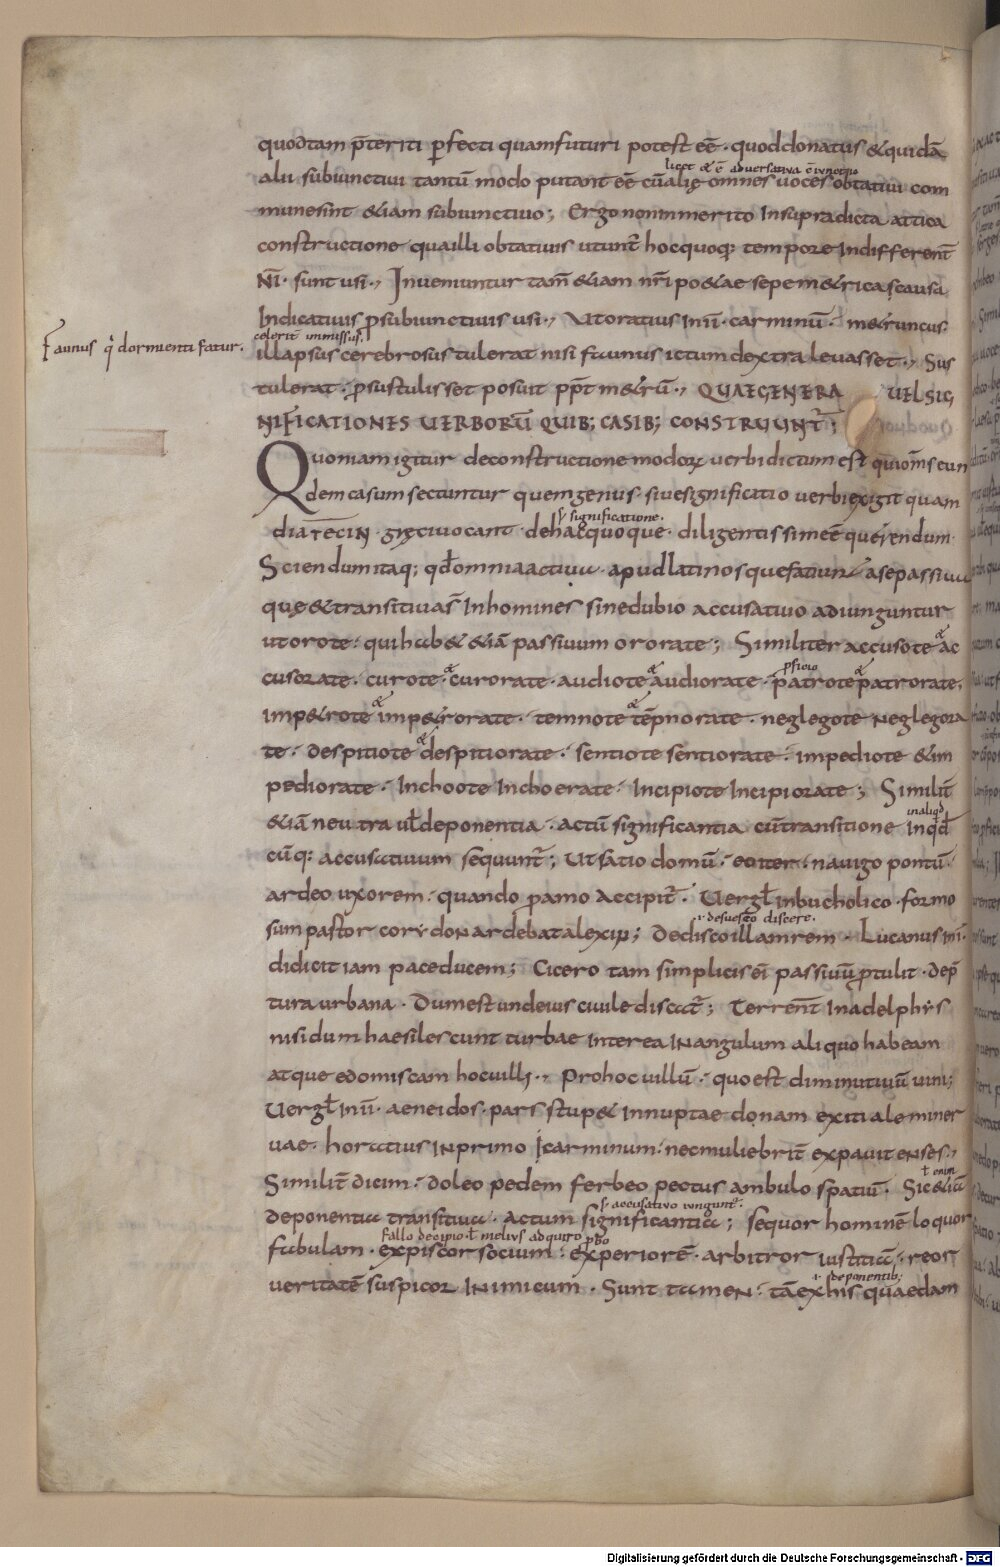 quod tam p̄teriti p̄fecti quam futuri potest eē · quod donatus & quidā
licet & ē adversativa ꝯiunctio
alii subiunctivi tantū modo putant eē cū alie omnes voces obtativi com
munes int & iam subiunctivo; Ergo non inmerito In supradicta attica
constructione qua illi obtativis utunt̄ hoc quoq; tempore Indifferent
NT̄ · sunt usi ·, Inveniuntur tam̄ & iam nr̄i po&ae sepe m&rica causa
Indicativis p̄ subiunctivis usi ·, Ut oratius In ii · carminū · m& truncus
celerit immissus.
Faunus q̇ dormienti fatur.
illapsus cerebro sustulerat nisi faunus ictum dextra levasset ·, Sus
tulerat · p̄ sustulisset posuit pp̄t m&rū ·, QUAE GENERA UEL SIG
NIFICATIONES UERBORŪ QUIB; CASIB; CONSTRUUNT̄;
Quoniam igitur de constructione modoꝝ verbi dictum est qui om̄s eun
dem casum sectuntur quem genus · sive significatio verbi exigit quam
s· significatione.
diaTECIN · gręci vocant · de hac quoque · diligentissime ē querendum·
Sciendum itaq; qđ omnia activa · apud latinos que fatiunt a se passiva
quę & transitivas̄ In homines sine dubio accusativo adiunguntur
ut oro te · qui hab& &iā passivum oror a te; Similiter accuso te & ac
cusor a te · curo te · & curor a te · audio te & audior a te · p̄atro te & p̄atror a te.
pficio
imp&ro te & imp&ror a te · temno te & tēpnor a te · neglego te Neglegor a
te · despitio te & despitior a te · sentio te sentior a te · impedio te & im
pedior a te · Inchoo te Inchoer a te · Incipio te Incipior a te; Similit̄
in aliqđ
&iā neutra vł deponentia · actū significantia cū transitione Inqđ
cūq; accusativum sequunt̄; Ut fatio domū · eo iter · navigo pontū·
ardeo uxorem · quando p amo Accipit̄ · Uergł in bucholico · formo
i· desuesco discere.
sum pastor corydon ardebat alexin; dedisco illam rem · Lucanus in i·
didicit iam pace ducem; Cicero tam simplicis ei passivū p̄tulit · de p̄
tura urbana · Dum est unde ius civile discat̄; Terrent̄ In adelphys
nisi dum haesilescunt turbae Interea In angulum aliquo habeam
atque edomiscam hoc villi ·, Pro hoc villū · quo est diminutivū vini;
Uergł In ii · aeneidos · pars stup& Innuptae donam exitiale miner
vae · horatius IN primo Icarminum · nec muliebrit̄ expavit enses ·,
ł enim
Similit̄ dicim̄ · doleo pedem ferbeo pectus ambulo spatiū · Sic &iā
s· accusativo iungunt̄.
deponentia transitiva · Actum significantia; sequor hominē loquor
fallo decipio · ł melivs adquiro pbo
fabulam · expiscor socium · experior ē · arbitror iustitiā · reor
i· deponentib;
veritatē suspicor INimicum · Sunt tamen · tā ex his quaedam
Digitalisierung gefördert durch die Deutsche Forschungsgemeinschaft - DFG